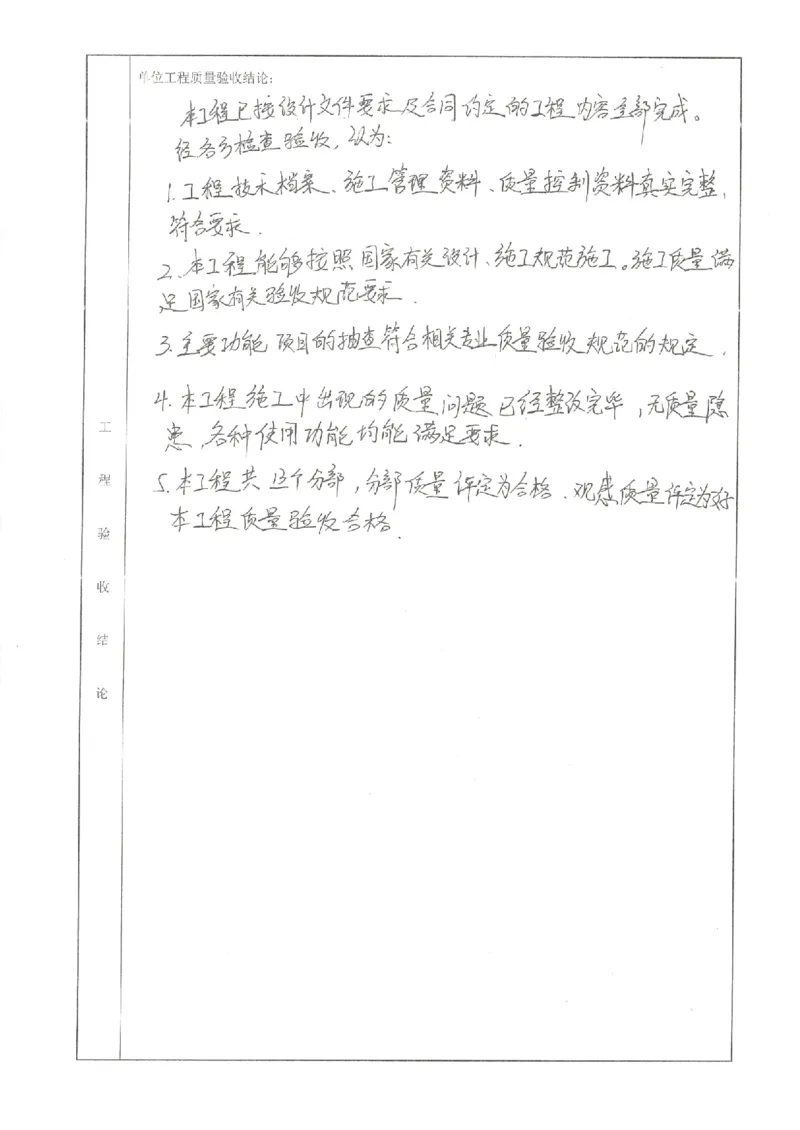 单位工程质量验收结论:
本工程已按设计文件要求及合同约定的工程内容全部完成。
经各方检查验收, 认为:
1.工程技术档案、施工管理资料、质量控制资料真实完整,
符合要求.
2.本工程能够按照国家有关设计、施工规范施工。施工质量满
足国家有关验收规范要求.
3.主要功能项目的抽查符合相关专业质量验收规范的规定.
4.本工程施工中出现的质量问题已经整改完毕,无质量隐
患,各种使用功能均能满足要求.
5.本工程共 个分部,分部质量评定为合格.观感质量评定为好
本工程质量验收合格.
工
程
验
收
结
论